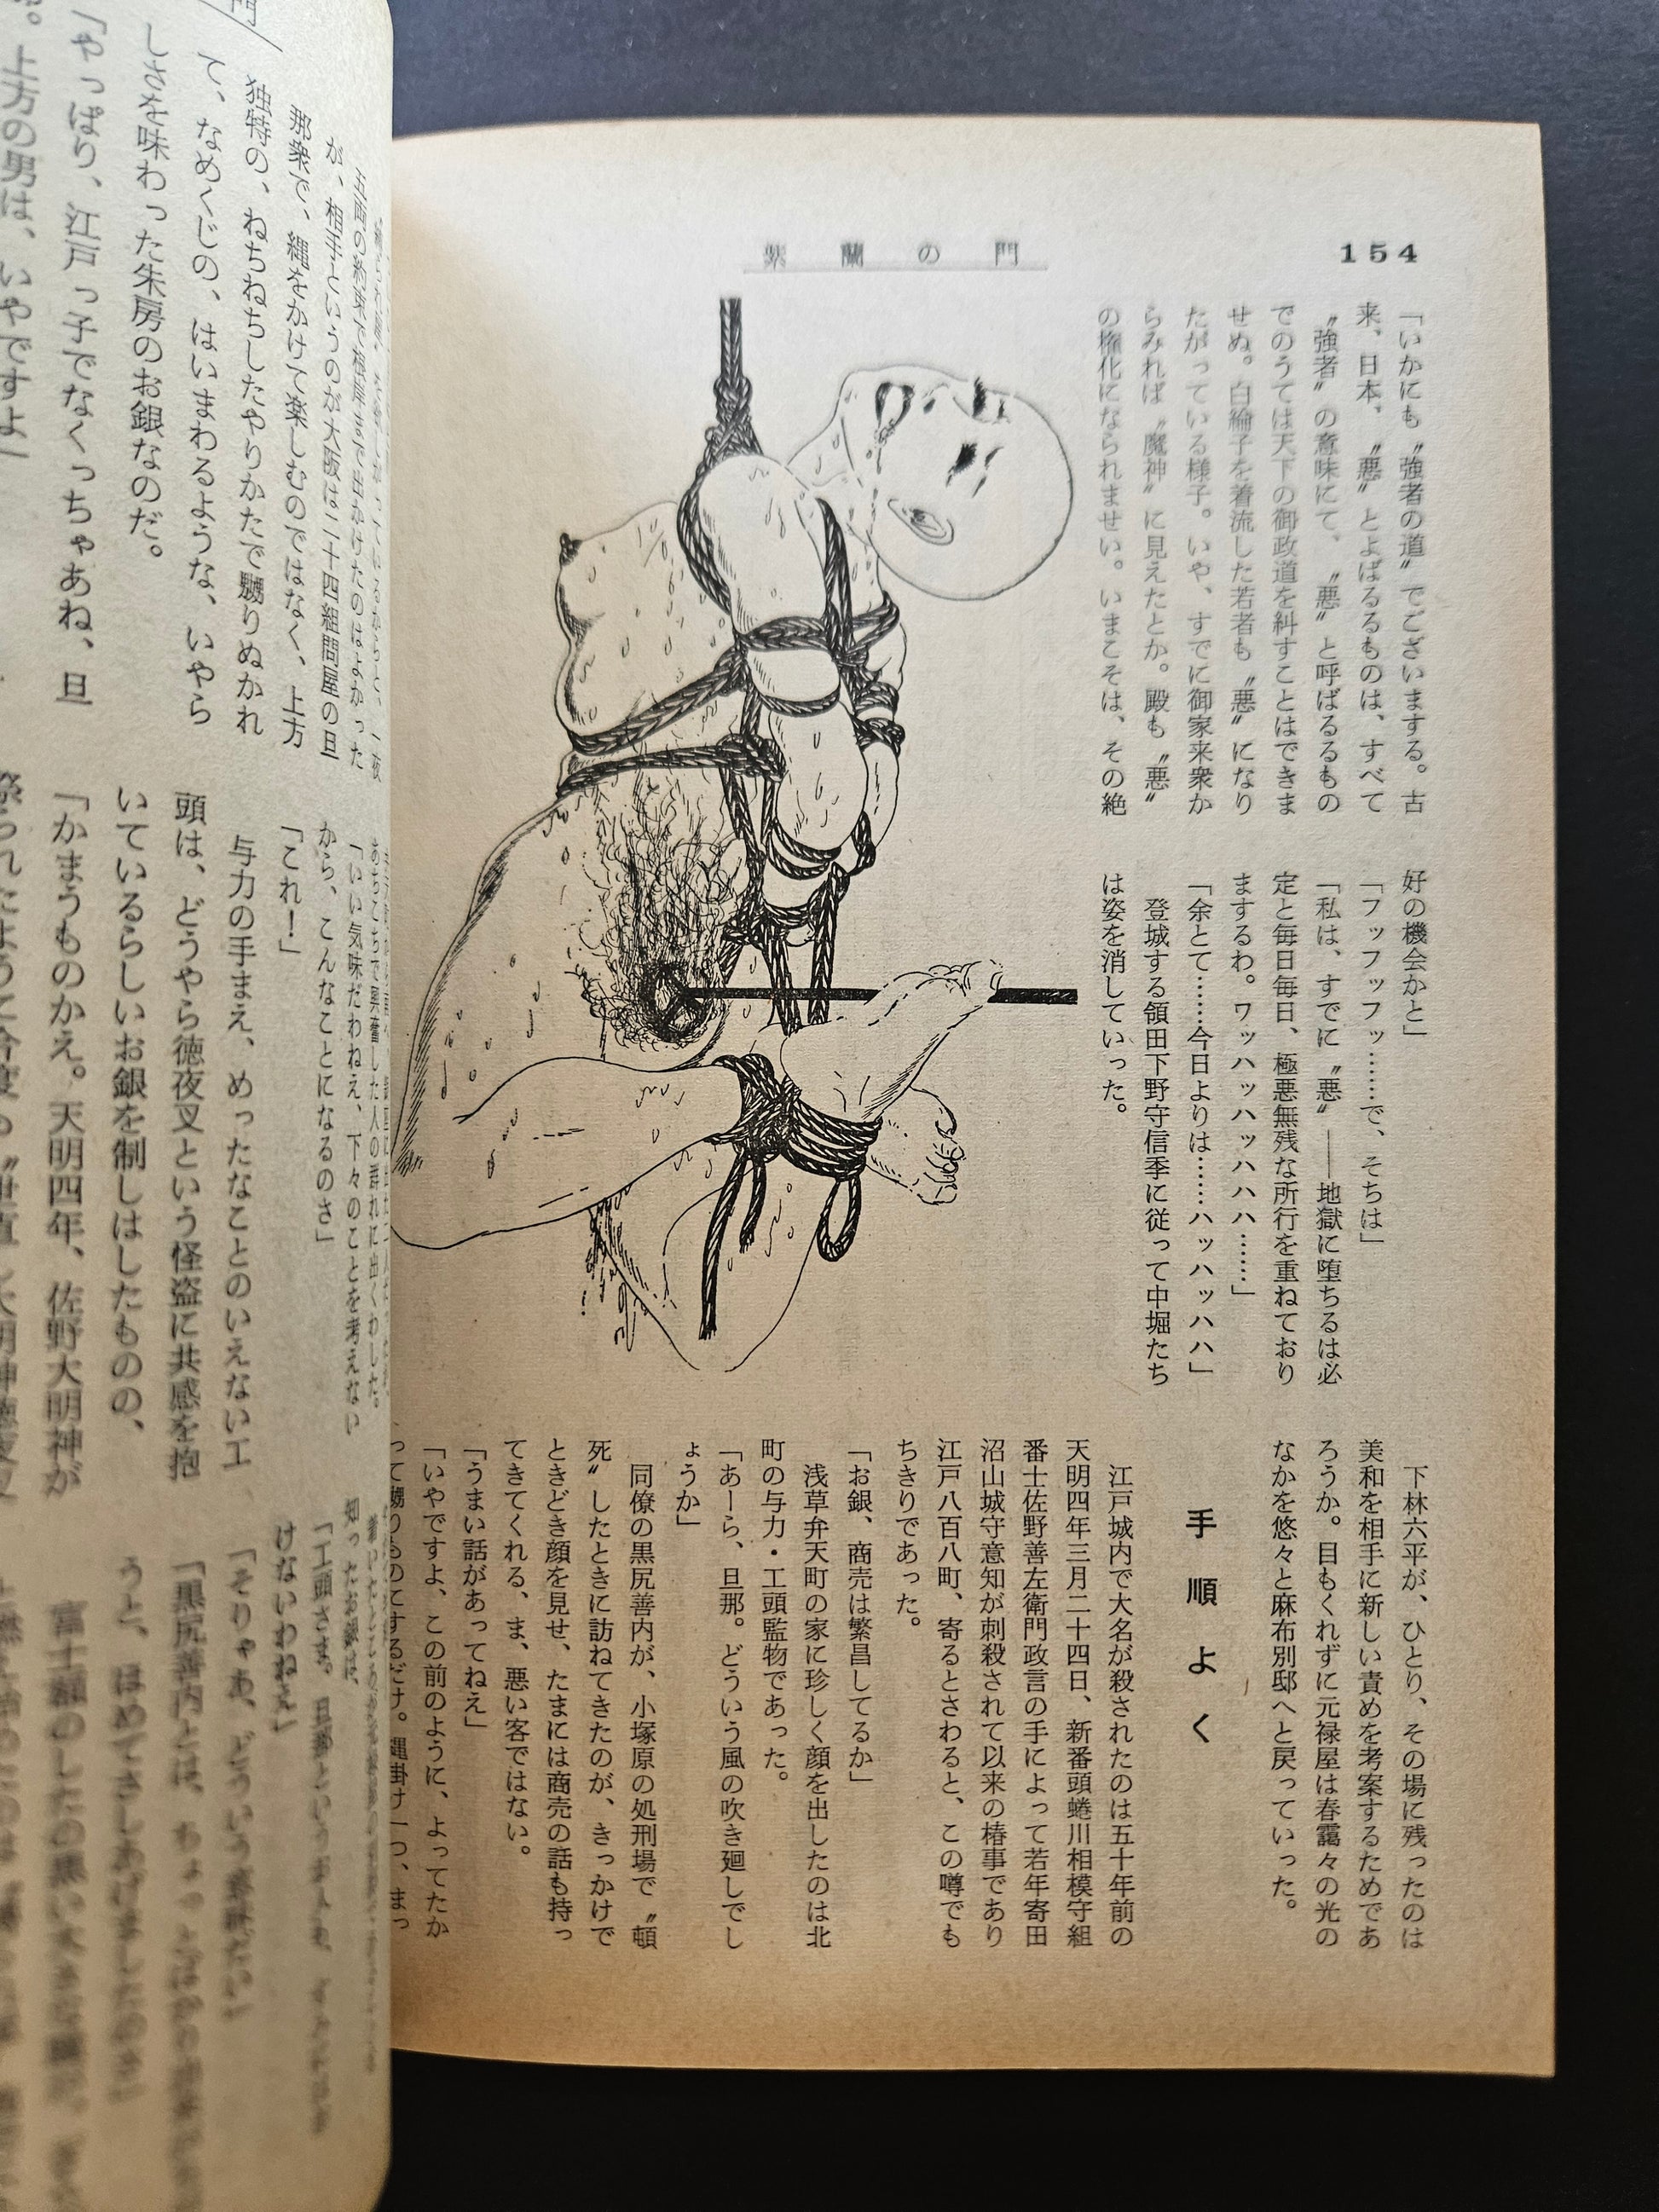 154
紫蘭の門
「いかにも〝強者の道〟でございまする。古
来、日本、〝悪〟とよばるるものは、すべて
〝強者〟の意味にて、〝悪〟と呼ばるるもの
でのうては天下の御政道を糾すことはできま
せぬ。白綸子を着流した若者も〝悪〟になり
たがっている様子。いや、すでに御家来衆か
らみれば〝魔神〟に見えたとか。殿も〝悪〟
の権化になられませい。いまこそは、その絶
好の機会かと」
「フッフッフッ……で、そちは」
「私は、すでに〝悪〟――地獄に堕ちるは必
定と毎日毎日、極悪無残な所行を重ねており
まするわ。ワッハッハッハハハ……」
「余とて……今日よりは……ハッハッハハ」
登城する領田下野守信季に従って中堀たち
は姿を消していった。
下林六平が、ひとり、その場に残ったのは
美和を相手に新しい責めを考案するためであ
ろうか。目もくれずに元禄屋は春靄々の光の
なかを悠々と麻布別邸へと戻っていった。
手順よく
江戸城内で大名が殺されたのは五十年前の
天明四年三月二十四日、新番頭蜷川相模守組
番士佐野善左衛門政言の手によって若年寄田
沼山城守意知が刺殺されて以来の椿事であり
江戸八百八町、寄るとさわると、この噂でも
ちきりであった。
「お銀、商売は繁昌してるか」
浅草弁天町の家に珍しく顔を出したのは北
町の与力・工頭監物であった。
「あーら、旦那。どういう風の吹き廻しでし
ょうか」
同僚の黒尻善内が、小塚原の処刑場で〝頓
死〟したときに訪ねてきたのが、きっかけで
ときどき顔を見せ、たまには商売の話も持っ
てきてくれる、ま、悪い客ではない。
「うまい話があってねえ」
「いやですよ、この前のように、よってたか
って嬲りものにするだけ。縄掛け一つ、まっ
が、相手というのが大阪は二十四組問屋の旦
那衆で、縄をかけて楽しむのではなく、上方
独特の、ねちねちしたやりかたで嬲りぬかれ
て、なめくじの、はいまわるような、いやら
しさを味わった朱房のお銀なのだ。
「やっぱり、江戸っ子でなくっちゃあね、旦
上方の男は、いやですよ」
「いい気味だわねえ、下々のことを考えない
から、こんなことになるのさ」
「これ！」
与力の手まえ、めったなことのいえない工
頭は、どうやら徳夜叉という怪盗に共感を抱
いているらしいお銀を制しはしたものの、
「かまうものかえ。天明四年、佐野大明神が
知ったお銀は、
けないわねえ」
「そりゃあ、どういう
「黒尻善内とは、